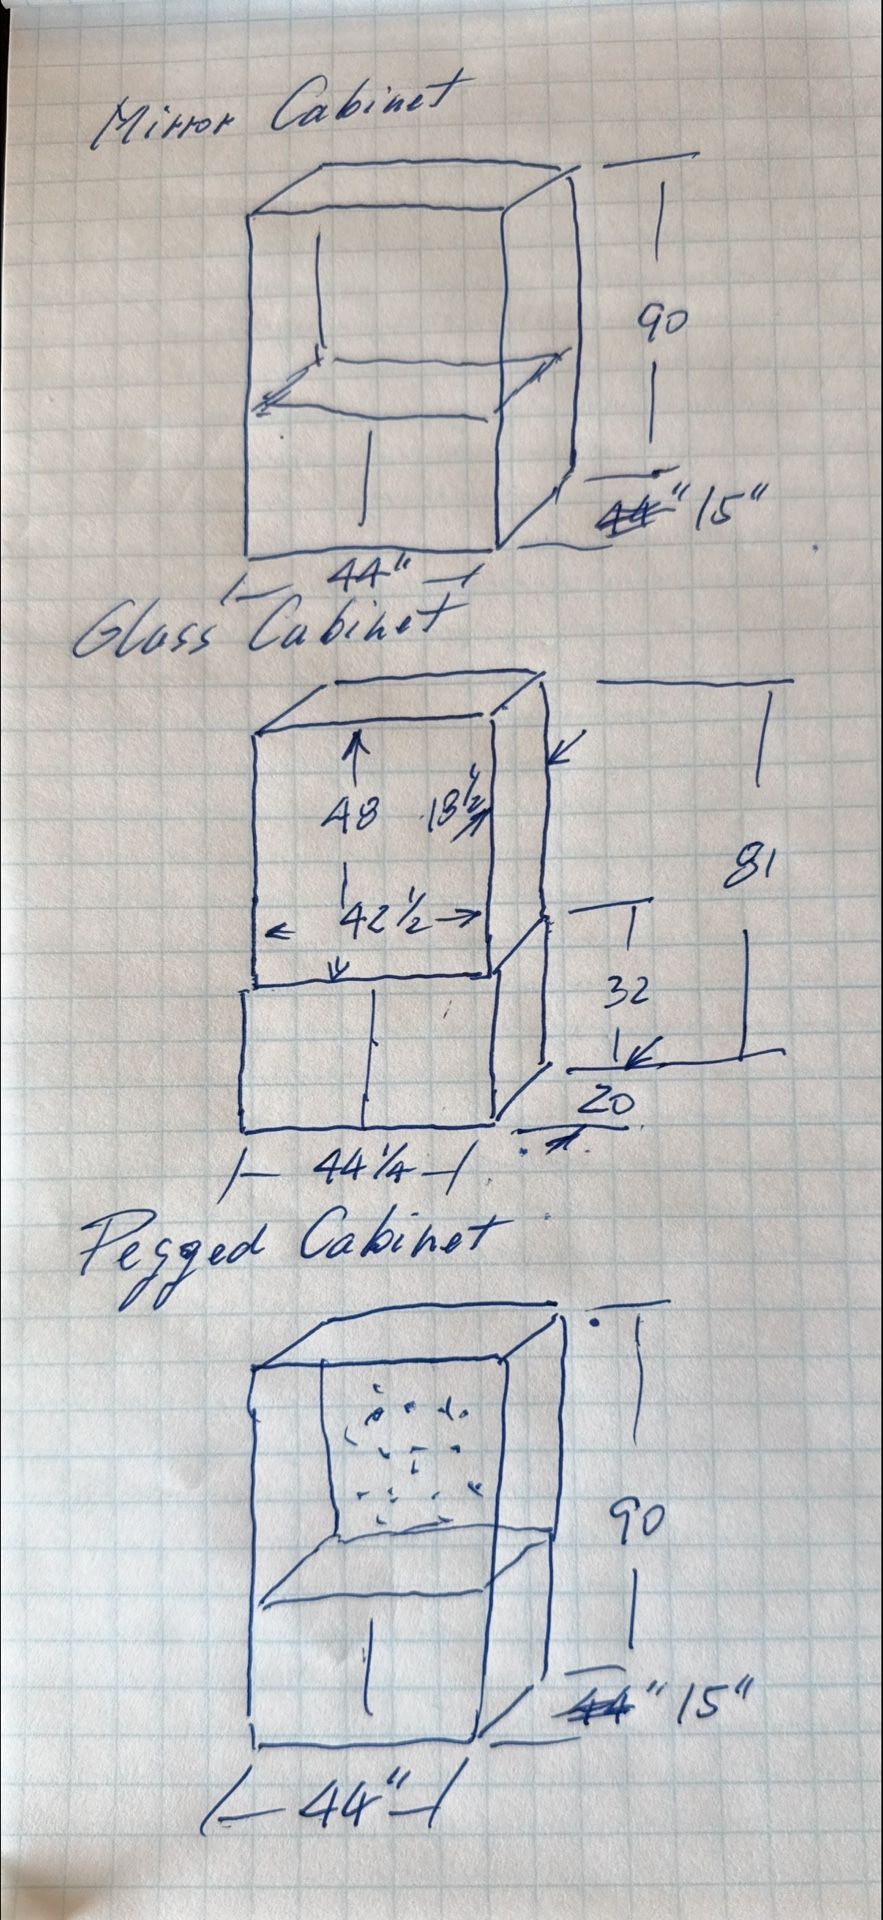 Mirror Cabinet
90
44" 15"
44"
Glass Cabinet
48 18 1/2
81
42 1/2
32
20
44 1/4
Pegged Cabinet
90
44" 15"
44"